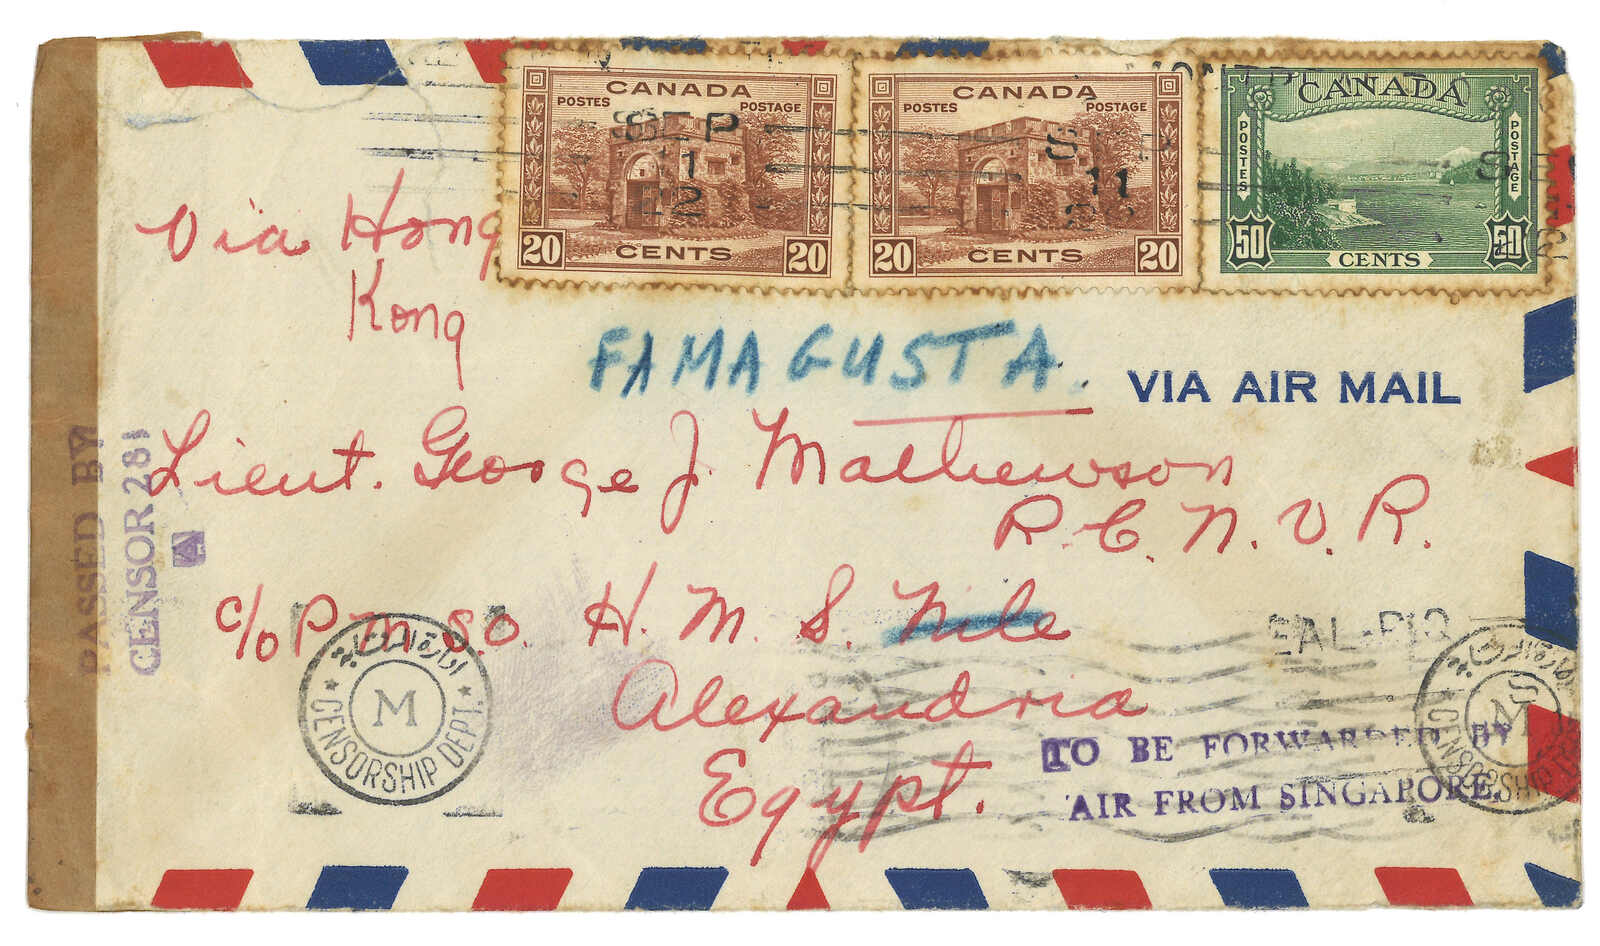 CANADA
POSTES POSTAGE
20 CENTS 20
CANADA
POSTES POSTAGE
20 CENTS 20
CANADA
POSTES POSTAGE
50 CENTS 50
SEP
11
Via Hong
Kong
FAMAGUSTA.
VIA AIR MAIL
Lieut. George J Mathewson
R. C. N. V. R.
c/o P.M.S.O. H. M. S. Nile
Alexandria
Egypt.
PASSED BY
CENSOR 281
A
M
CENSORSHIP DEPT.
TO BE FORWARDED BY
AIR FROM SINGAPORE.
EAL-P.Q
M
CENSORSHIP